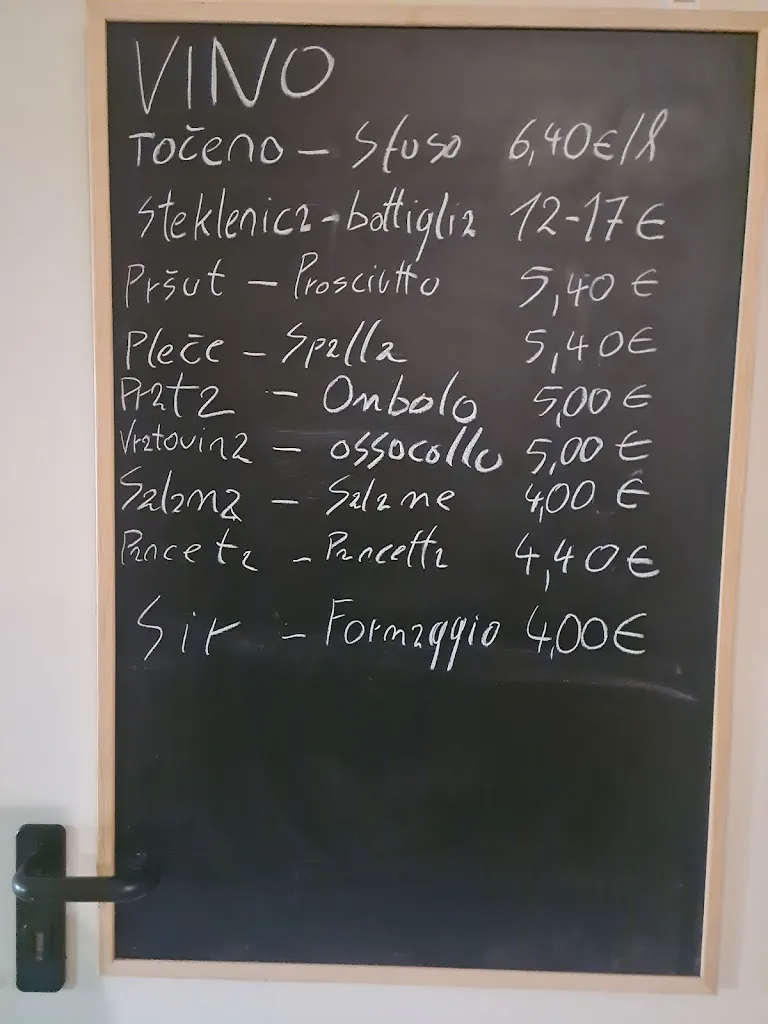 VINO
TOČENO - Sfuso 6,40€/l
Steklenica - bottiglia 12-17€
Pršut - Prosciutto 5,40€
Pleče - Spalla 5,40€
Prata - Ombolo 5,00€
Vratovina - ossocollo 5,00€
Salama - Salame 4,00€
Panceta - Pancetta 4,40€
Sir - Formaggio 4,00€